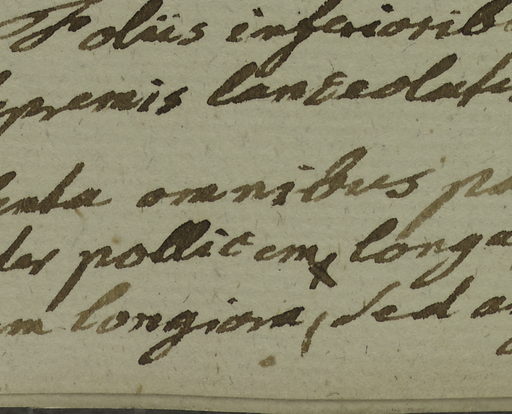 Foliis inferiorib
premis lanceolatis
enta omnibus pa
der pollicem, longa
m longiora, sed a